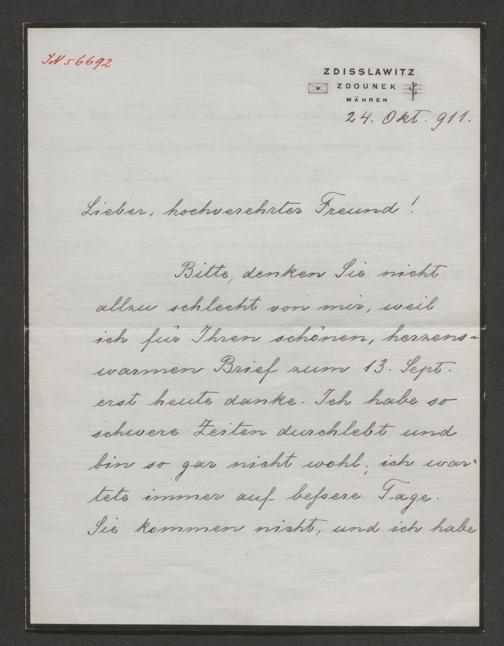 IN 56692
ZDISSLAWITZ
ZDOUNEK
MÄHREN
24. Okt. 911.
Lieber, hochverehrter Freund!
Bitte, denken Sie nicht
allzu schlecht von mir, weil
ich für Ihren schönen, herzens-
warmen Brief zum 13. Sept.
erst heute danke. Ich habe so
schwere Zeiten durchlebt und
bin so gar nicht wohl; ich war-
tete immer auf beßere Tage.
Sie kommen nicht, und ich habe